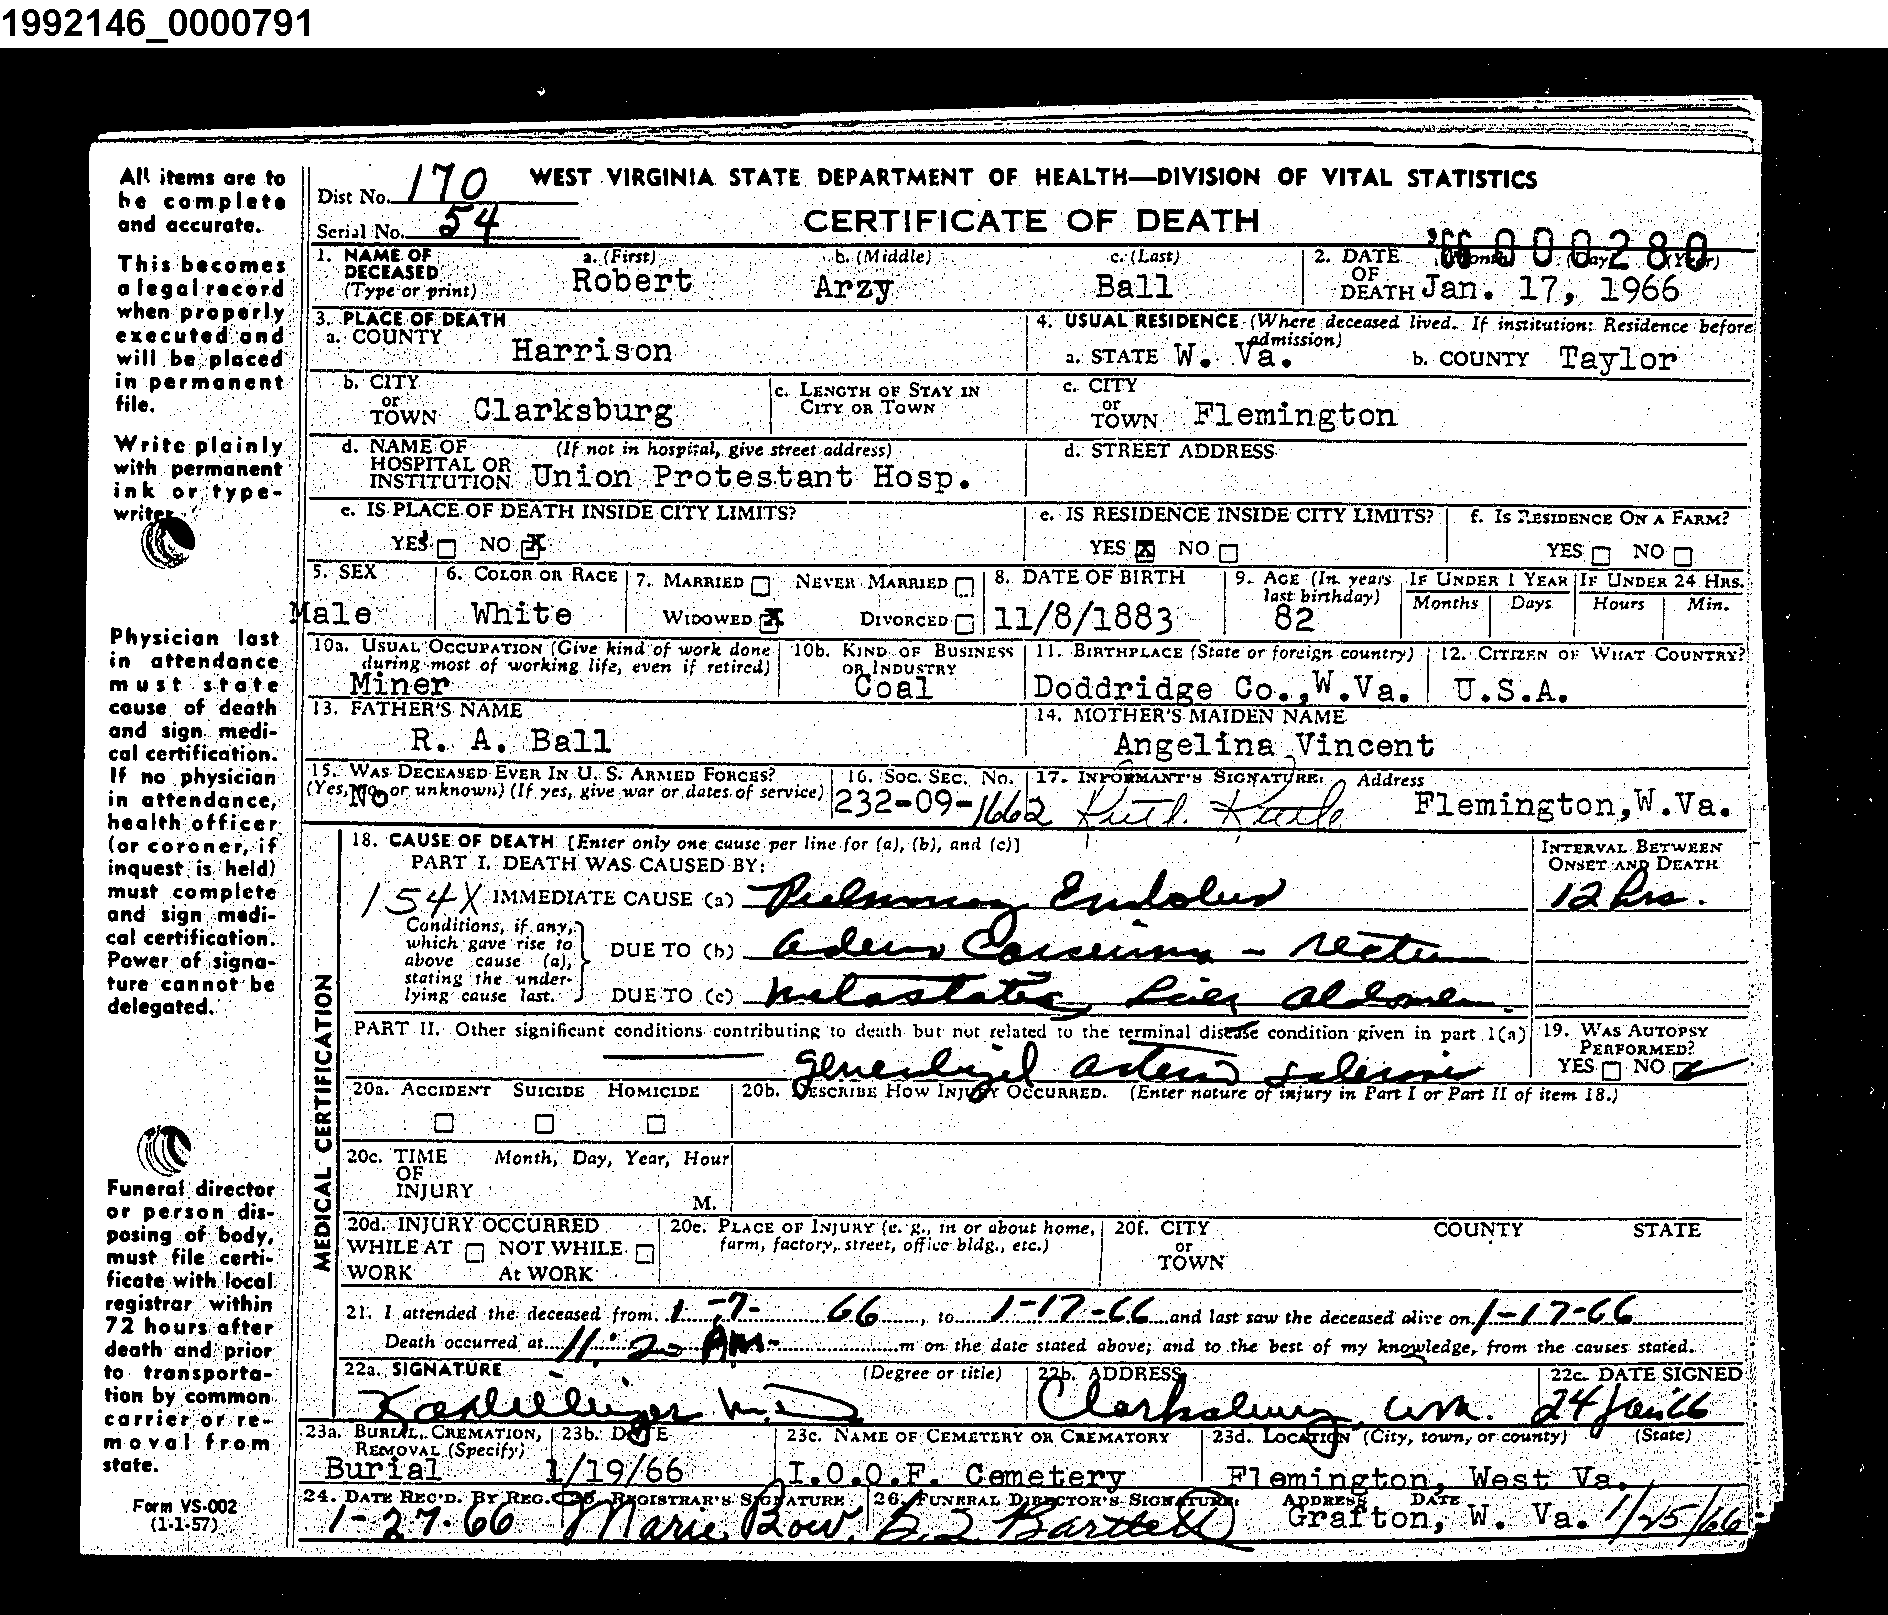 1992146_0000791
All items are to be complete and accurate.
This becomes a legal record when properly executed and will be placed in permanent file.
Write plainly with permanent ink or typewriter.
Physician last in attendance must state cause of death and sign medical certification. If no physician in attendance, health officer (or coroner, if inquest is held) must complete and sign medical certification. Power of signature cannot be delegated.
Funeral director or person disposing of body, must file certificate with local registrar within 72 hours after death and prior to transportation by common carrier or removal from state.
Form VS-002
(1-1-57)
Dist No. 170
Serial No. 54
WEST VIRGINIA STATE DEPARTMENT OF HEALTH—DIVISION OF VITAL STATISTICS
CERTIFICATE OF DEATH
'66 000280
1. NAME OF DECEASED (Type or print) a. (First) Robert b. (Middle) Arzy c. (Last) Ball
2. DATE OF DEATH (Month) (Day) (Year) Jan. 17, 1966
3. PLACE OF DEATH
a. COUNTY Harrison
4. USUAL RESIDENCE (Where deceased lived. If institution: Residence before admission)
a. STATE W. Va. b. COUNTY Taylor
b. CITY or TOWN Clarksburg
c. LENGTH OF STAY IN CITY OR TOWN
c. CITY or TOWN Flemington
d. NAME OF HOSPITAL OR INSTITUTION (If not in hospital, give street address) Union Protestant Hosp.
d. STREET ADDRESS
e. IS PLACE OF DEATH INSIDE CITY LIMITS?
YES NO X
e. IS RESIDENCE INSIDE CITY LIMITS?
YES X NO
f. IS RESIDENCE ON A FARM?
YES NO
5. SEX Male
6. COLOR OR RACE White
7. MARRIED NEVER MARRIED
WIDOWED X DIVORCED
8. DATE OF BIRTH 11/8/1883
9. AGE (In years last birthday) 82
IF UNDER 1 YEAR Months Days
IF UNDER 24 HRS. Hours Min.
10a. USUAL OCCUPATION (Give kind of work done during most of working life, even if retired) Miner
10b. KIND OF BUSINESS OR INDUSTRY Coal
11. BIRTHPLACE (State or foreign country) Doddridge Co.,W.Va.
12. CITIZEN OF WHAT COUNTRY? U.S.A.
13. FATHER'S NAME R. A. Ball
14. MOTHER'S MAIDEN NAME Angelina Vincent
15. WAS DECEASED EVER IN U. S. ARMED FORCES?
(Yes, no, or unknown) (If yes, give war or dates of service) No
16. SOC. SEC. No. 232-09-1662
17. INFORMANT'S SIGNATURE Ruth Address Flemington,W.Va.
MEDICAL CERTIFICATION
18. CAUSE OF DEATH [Enter only one cause per line for (a), (b), and (c)]
PART I. DEATH WAS CAUSED BY:
INTERVAL BETWEEN ONSET AND DEATH
154X IMMEDIATE CAUSE (a) Pulmonary Embolus 12 hrs.
Conditions, if any, which gave rise to above cause (a), stating the underlying cause last.
DUE TO (b) Adeno Carcinoma - rectum
DUE TO (c) metastatic, liver, abdomen
PART II. Other significant conditions contributing to death but not related to the terminal disease condition given in part 1(a)
generalized arterio sclerosis
19. WAS AUTOPSY PERFORMED?
YES NO ✓
20a. ACCIDENT SUICIDE HOMICIDE
20b. DESCRIBE HOW INJURY OCCURRED. (Enter nature of injury in Part I or Part II of item 18.)
20c. TIME OF INJURY Month, Day, Year, Hour M.
20d. INJURY OCCURRED
WHILE AT WORK NOT WHILE At WORK
20e. PLACE OF INJURY (e. g., in or about home, farm, factory, street, office bldg., etc.)
20f. CITY or TOWN COUNTY STATE
21. I attended the deceased from 1-7-66, to 1-17-66 and last saw the deceased alive on 1-17-66
Death occurred at 11:20 AM m on the date stated above; and to the best of my knowledge, from the causes stated.
22a. SIGNATURE (Degree or title) M.D.
22b. ADDRESS Clarksburg, W.Va.
22c. DATE SIGNED 24 Jan 66
23a. BURIAL, CREMATION, REMOVAL (Specify) Burial
23b. DATE 1/19/66
23c. NAME OF CEMETERY OR CREMATORY I.O.O.F. Cemetery
23d. LOCATION (City, town, or county) (State) Flemington, West Va.
24. DATE REC'D. BY REG. 1-27-66
25. REGISTRAR'S SIGNATURE Marie Bow
26. FUNERAL DIRECTOR'S SIGNATURE Bartlett ADDRESS Grafton, W. Va. DATE 1/25/66